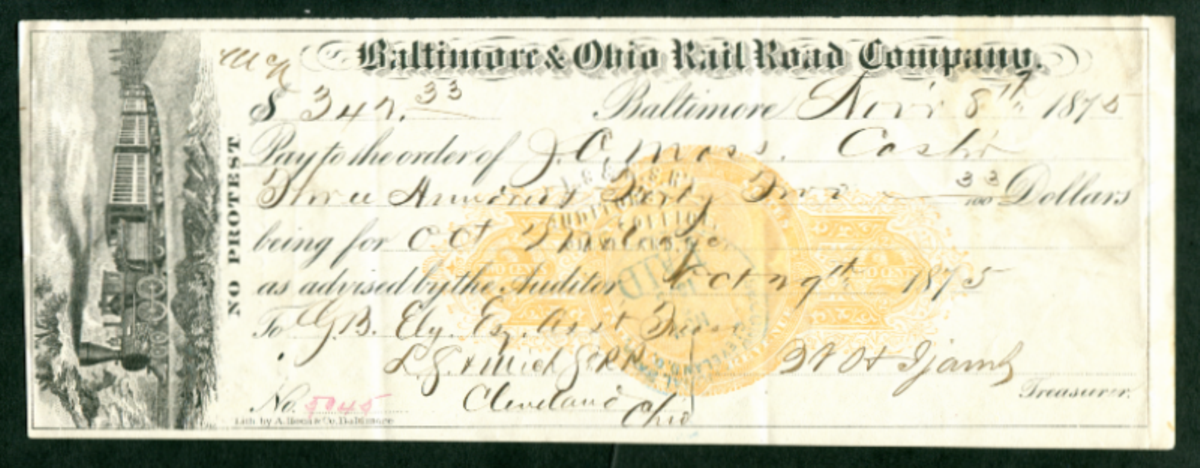 Baltimore & Ohio Rail Road Company.
$ 342.33 Baltimore Nov'r 8th 1875
Pay to the order of J. C. Moss. Cash'r
Three Hundred Forty Two 33/100 Dollars
being for Oct
as advised by the Auditor Oct 29th 1875
To G.B. Ely. Esq. Asst Treas
L.S. & Mich S. R.R.
Cleveland
Ohio
W H Ijams
Treasurer.
No. 5045
Lith by A. Hoen & Co. Baltimore
NO PROTEST
PAID